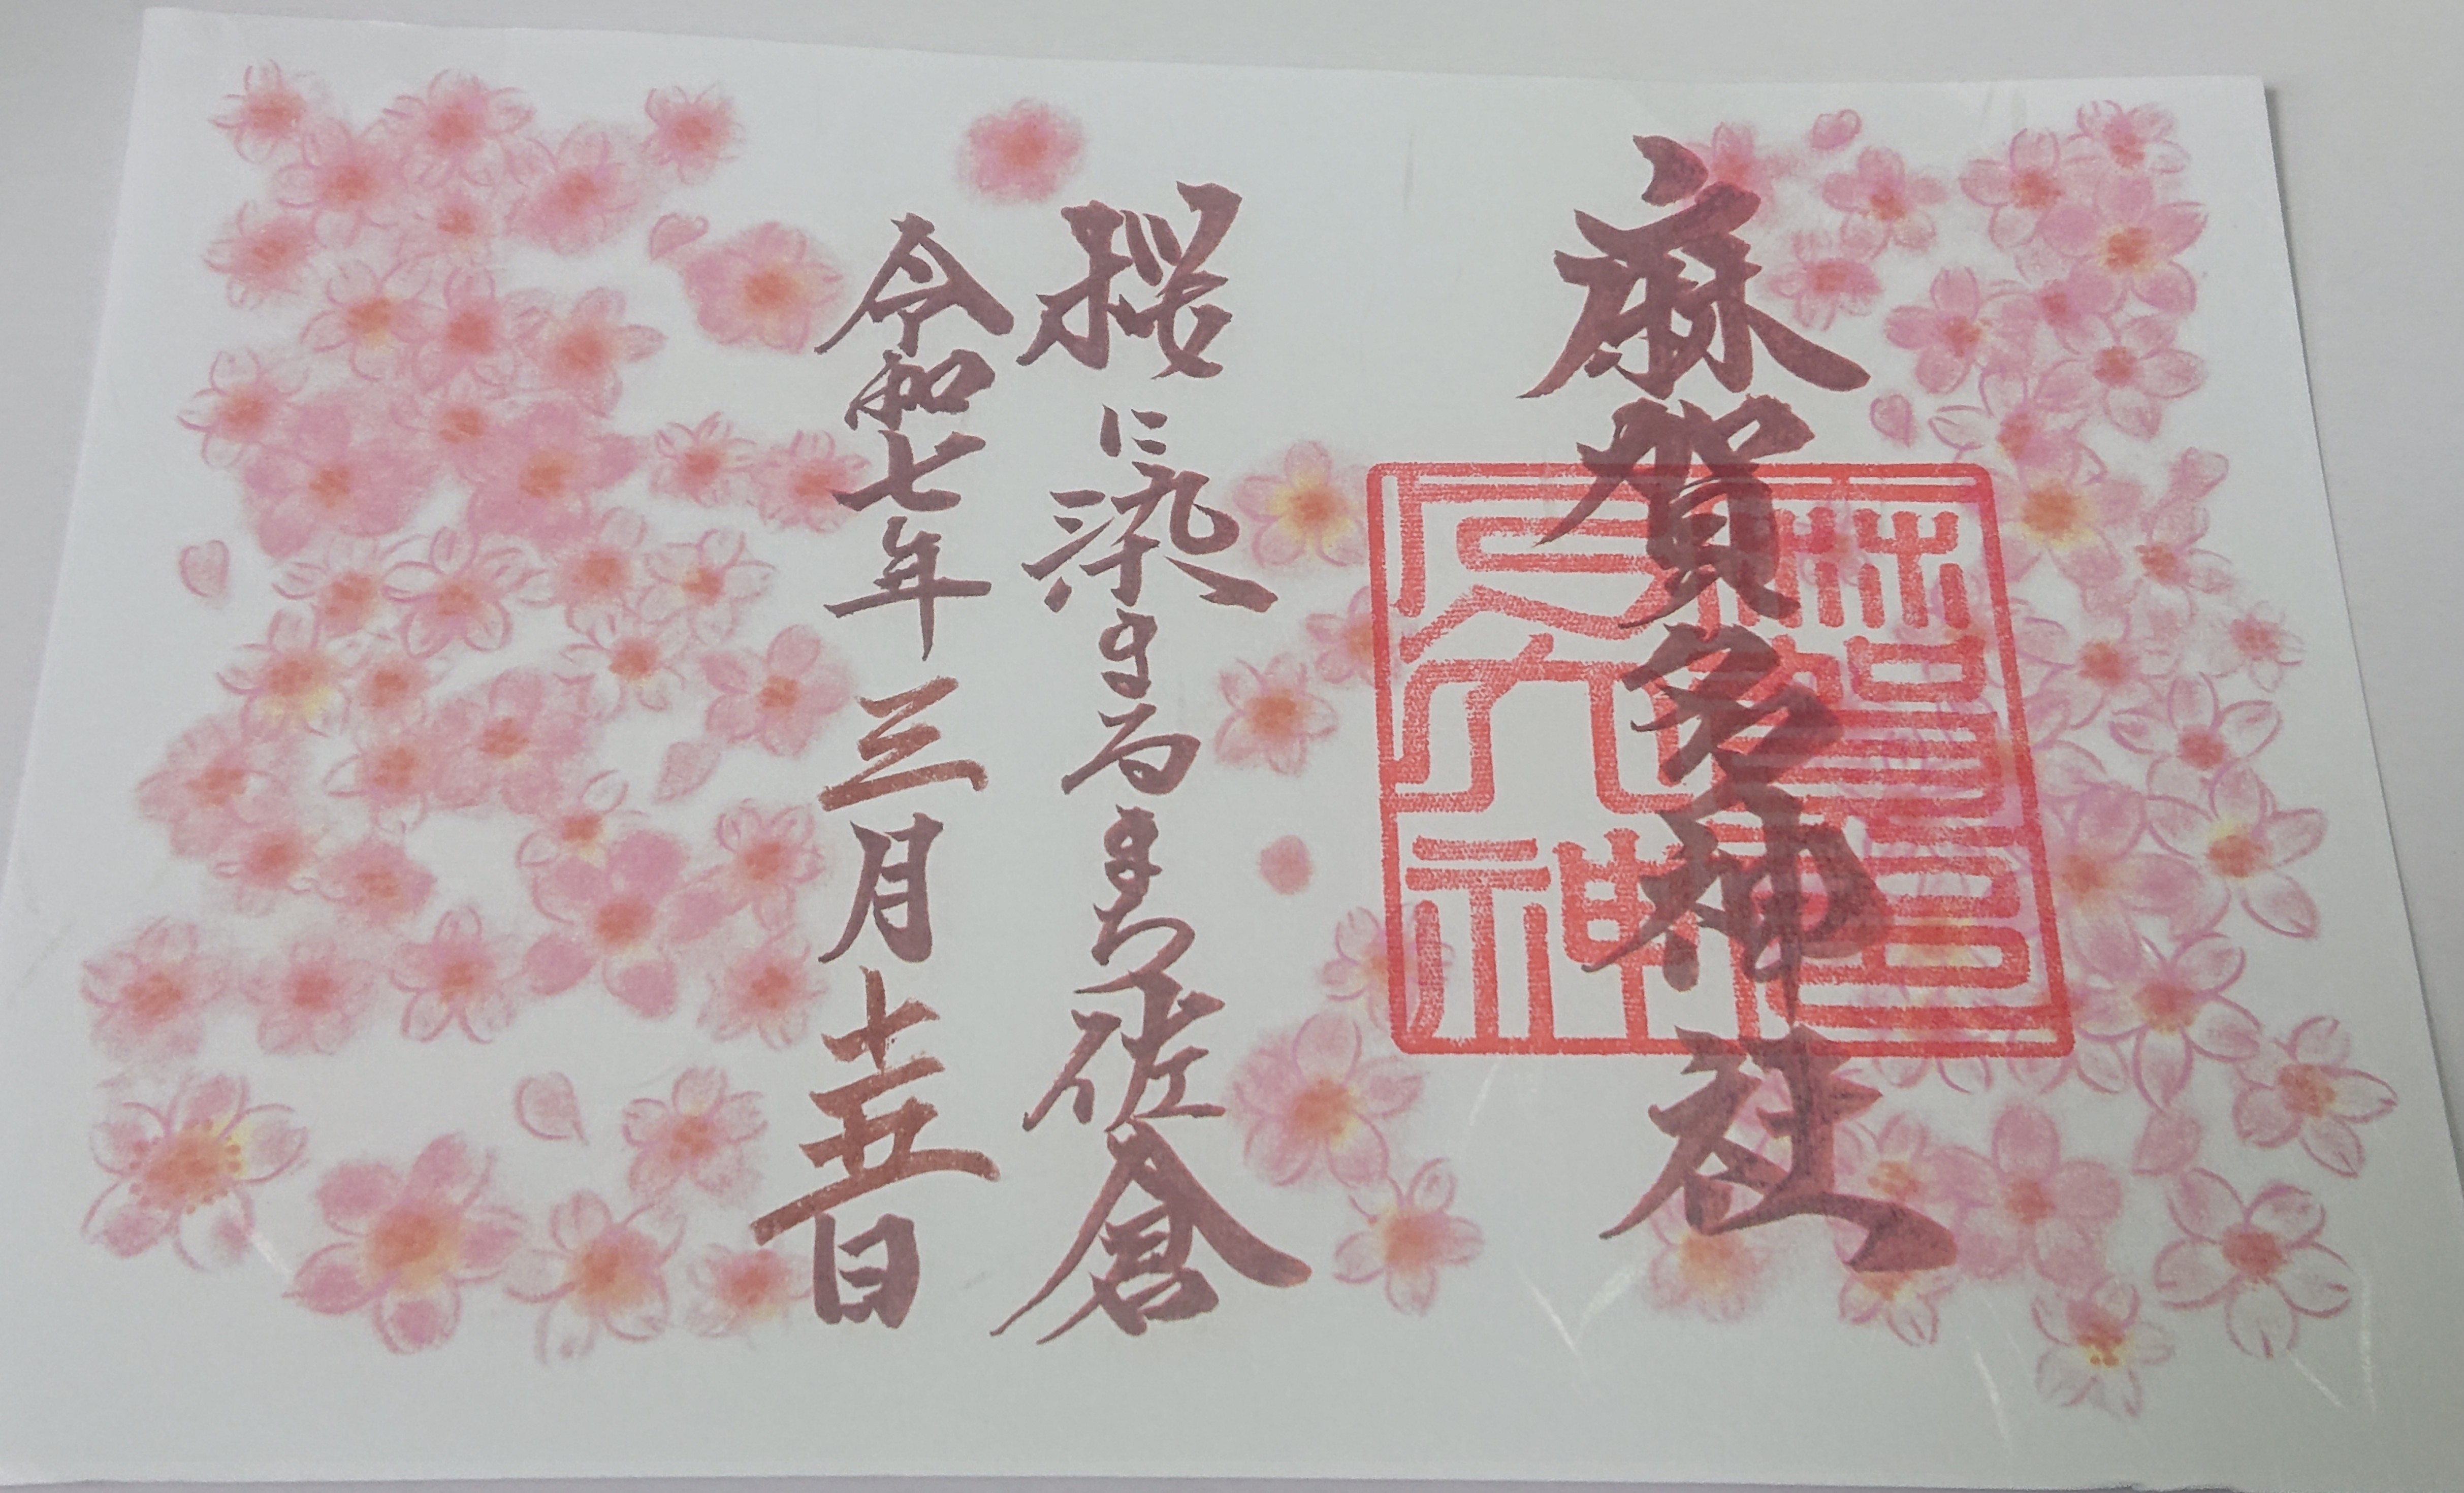 麻賀多神社
桜に染まるまち佐倉
令和七年三月十五日
麻賀多大神